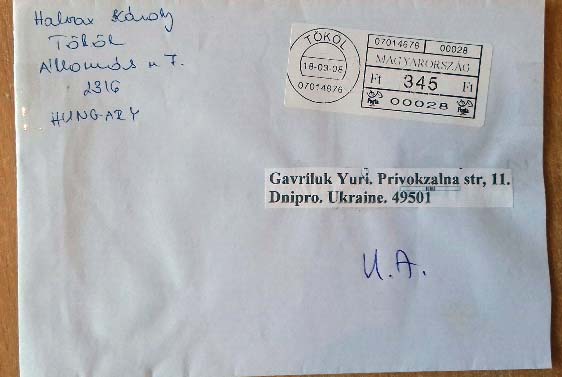 Halvax Károly
Tököl
Állomás u 7.
2316
HUNGARY
TÖKÖL
18-03-08
07014676
07014676 00028
MAGYARORSZÁG
Ft 345 Ft
Posta 00028 Posta
Gavriluk Yuri. Privokzalna str, 11.
Dnipro. Ukraine. 49501
U.A.